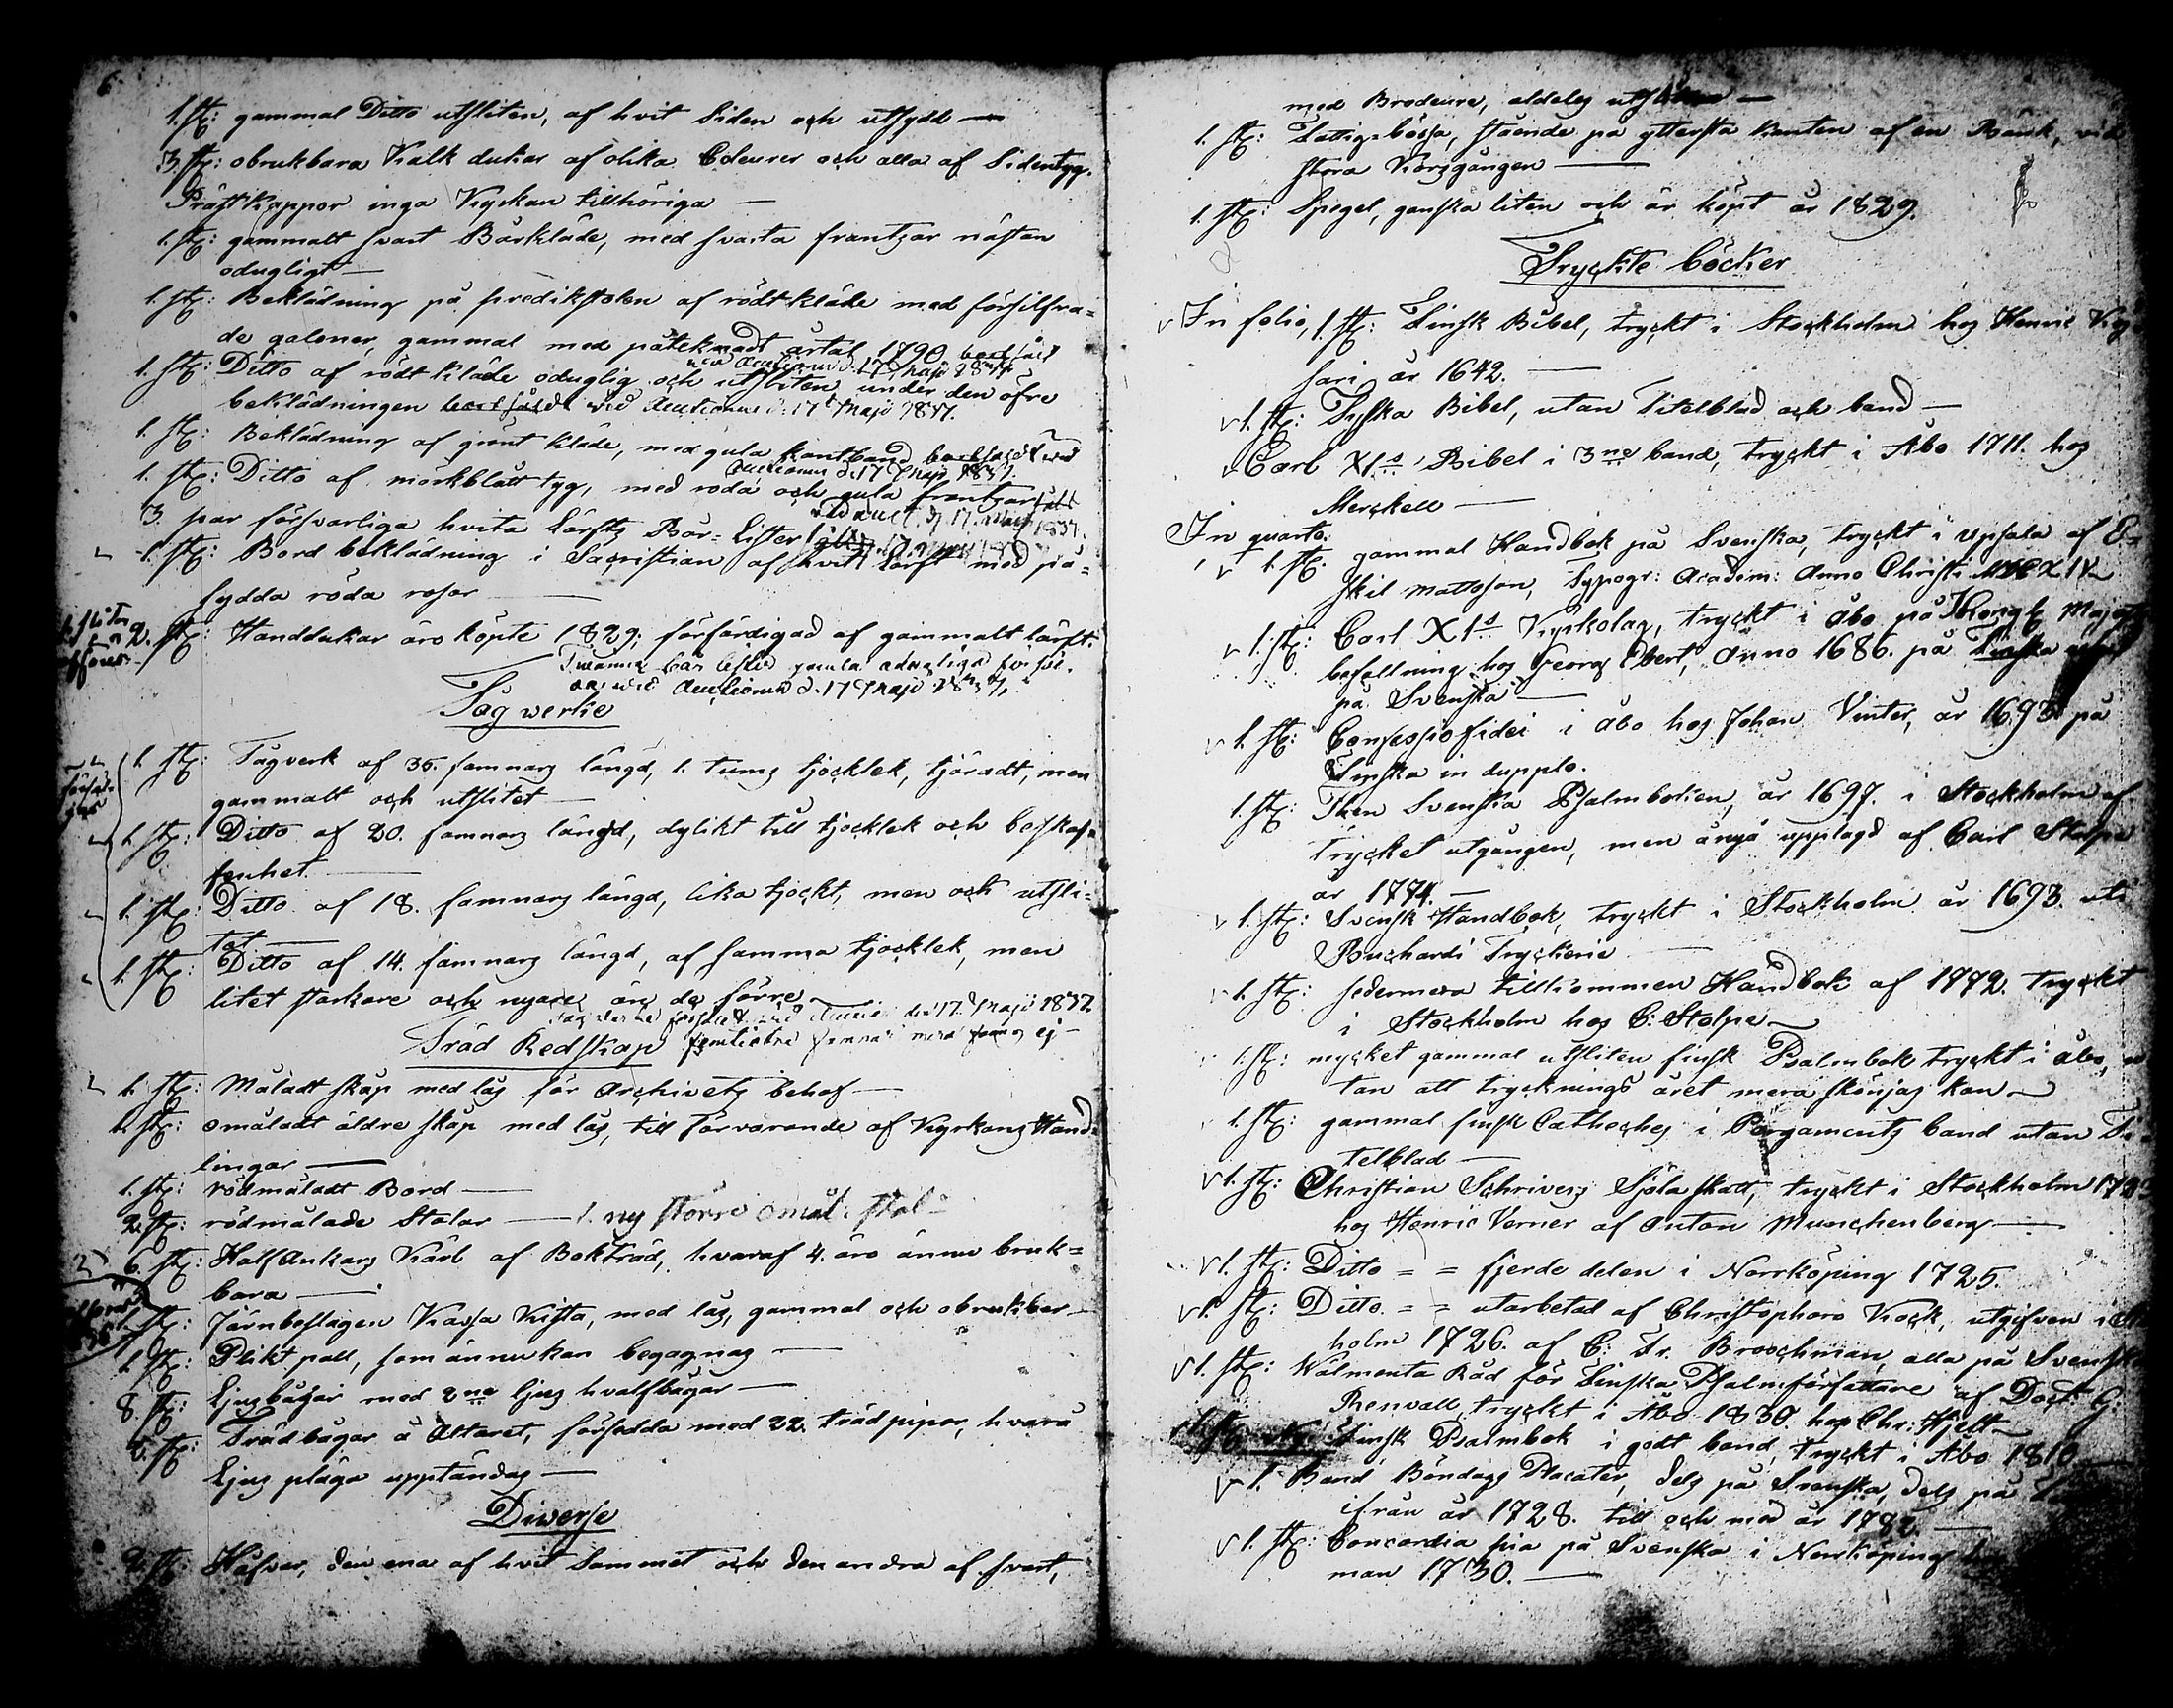 6.
1. st: gammal Ditto utsliten, af hvit Siden och utsydd —
3. st: obrukbara Kalk dukar af olika Coleurer och alla af Sidentyg.
Prästkappor inga Kyrkan tillhöriga —
1. st: gammalt svart Bårkläde, med svarta frantzar nästan
odugligt —
1. st: Beklädning på predikstolen af rödt kläde med försilfra-
de galoner, gammal med påteknadt årtal 1790 bortsåld
wid Auctionen d. 17 Maji 1837
1. st: Ditto af rödt kläde oduglig och utsliten under den öfre
beklädningen bortsåldt wid Auctionen d: 17 Maji 1837.
1. st: Beklädning af grönt kläde, med gula kantband bortsåldt wid
Auctionen d. 17 Maji 1837.
1. st: Ditto af mörkblått tyg, med röda och gula frantzar såld
wid auct. d. 17. Maji 1837.
3. par försvarliga hvita Lärfts Bår-Lister
1. st: Bord beklädning i Sacristian af hvit lärft med på-
sydda röda rosor —
2. st: Handdukar äro köpte 1829; förfärdigad af gammalt lärft.
Tvänne bår lister gamla odugliga försål-
da wid Auctionen d. 17 Maji 1837.
Tåg werke
1. st: Tågverk af 35. famnars längd, 1. tums tjocklek, tjäradt, men
gammalt och utslitet —
1. st: Ditto af 20. famnars längd, dylikt till tjocklek och beskaf-
fenhet —
1. st: Ditto af 18. famnars längd, lika tjockt, men och utsli-
tet —
1. st: Ditto af 14. famnars längd, af samma tjocklek, men
litet starkare och nyare än de förre
försåldt wid Auction den 17. Maji 1837.
Träd Redskap
1. st: Måladt skåp med lås för Archivets behof —
1. st: omåladt äldre skåp med lås, till Förvarande af Kyrkans Hand-
lingar —
1. st: rödmåladt Bord —
2. st: rödmålade Stolar — 1. ny större omål: stol —
6. st: Half Ankars Kärl af Bokträd, hvaraf 4. äro ännu bruk-
bara —
1. st: Järnbeslagen Kassa Kista, med lås, gammal och obrukbar —
1. st: Pliktpall, som ännu kan begagnas —
8. st: Ljusbågar med 2ne ljus hvalfbågar —
st: Trädbågar å Altaret, försedda med 22. trädpipor, hvara
Ljus pläga upptändas —
Diverse
2. st: Håfvar, den ena af hvit Sammet och den andra af svart,
med Brodeure, aldeles utslitne —
1. st: Fattigbössa, stående på yttersta kanten af en Bänk, vid
stora Korsgången —
1. st: Spegel, ganska liten och är köpt år 1829.
Tryckte böcker
In folio, 1. st: Finsk Bibel, tryckt i Stockholm hos Henric Key-
sari år 1642. —
1. st: Tyska Bibel, utan Titelblad och band —
Carl XIs Bibel i 3ne band, tryckt i Åbo 1711. hos
Merckell —
In quarto.
1. st: gammal Handbok på Svenska, tryckt i Upsala af E-
skil Mattsson, Typogr: Academ: Anno Christi
1. st: Carl XIs Kyrkolag, tryckt i Åbo på Kongl. Majts
befallning hos Georg Ebert, Anno 1686. på Finska
på Svenska —
1. st: Confessio fidei i Åbo hos Johan Vinter, år 1693. på
Finska in dupplo.
1. st: Then Svenska Psalmboken, år 1697. i Stockholm af
trycket utgången, men ånyo upplagd af Carl Stolpe
år 1774. —
1. st: Svensk Handbok, tryckt i Stockholm år 1693. uti
Buchardi Tryckerie —
1. st: sedermera tillkommen Handbok af 1772. tryckt
i Stockholm hos C: Stolpe —
1. st: mycket gammal utsliten finsk Psalmbok tryckt i Åbo, u
tan att trycknings året mera skönjas kan —
1. st: gammal finsk Catheches i Pergaments band utan Ti-
telblad —
1. st: Christian Schrivers Själa skatt, tryckt i Stockholm
hos Henric Verner af Anton Munchenberg —
1. st: Ditto = = fjerde delen i Norrköping 1725.
1. st: Ditto = = utarbetad af Christophoro Kock, utgifven i
holm 1726. af C: Fr. Broochman, alla på Svenska
1. st: Wälmenta Råd för Finska Psalmförfattare af Doct: G:
Renvall, tryckt i Åbo 1830. hos Chr: Hjelt —
Finsk Psalmbok i godt band, tryckt i Åbo 1810
1. Band Böndags Placater, dels på Svenska, dels på
ifrån år 1728. till och med år 1782. —
1. st: Concordia pia på Svenska i Norrköping
man 1730. —